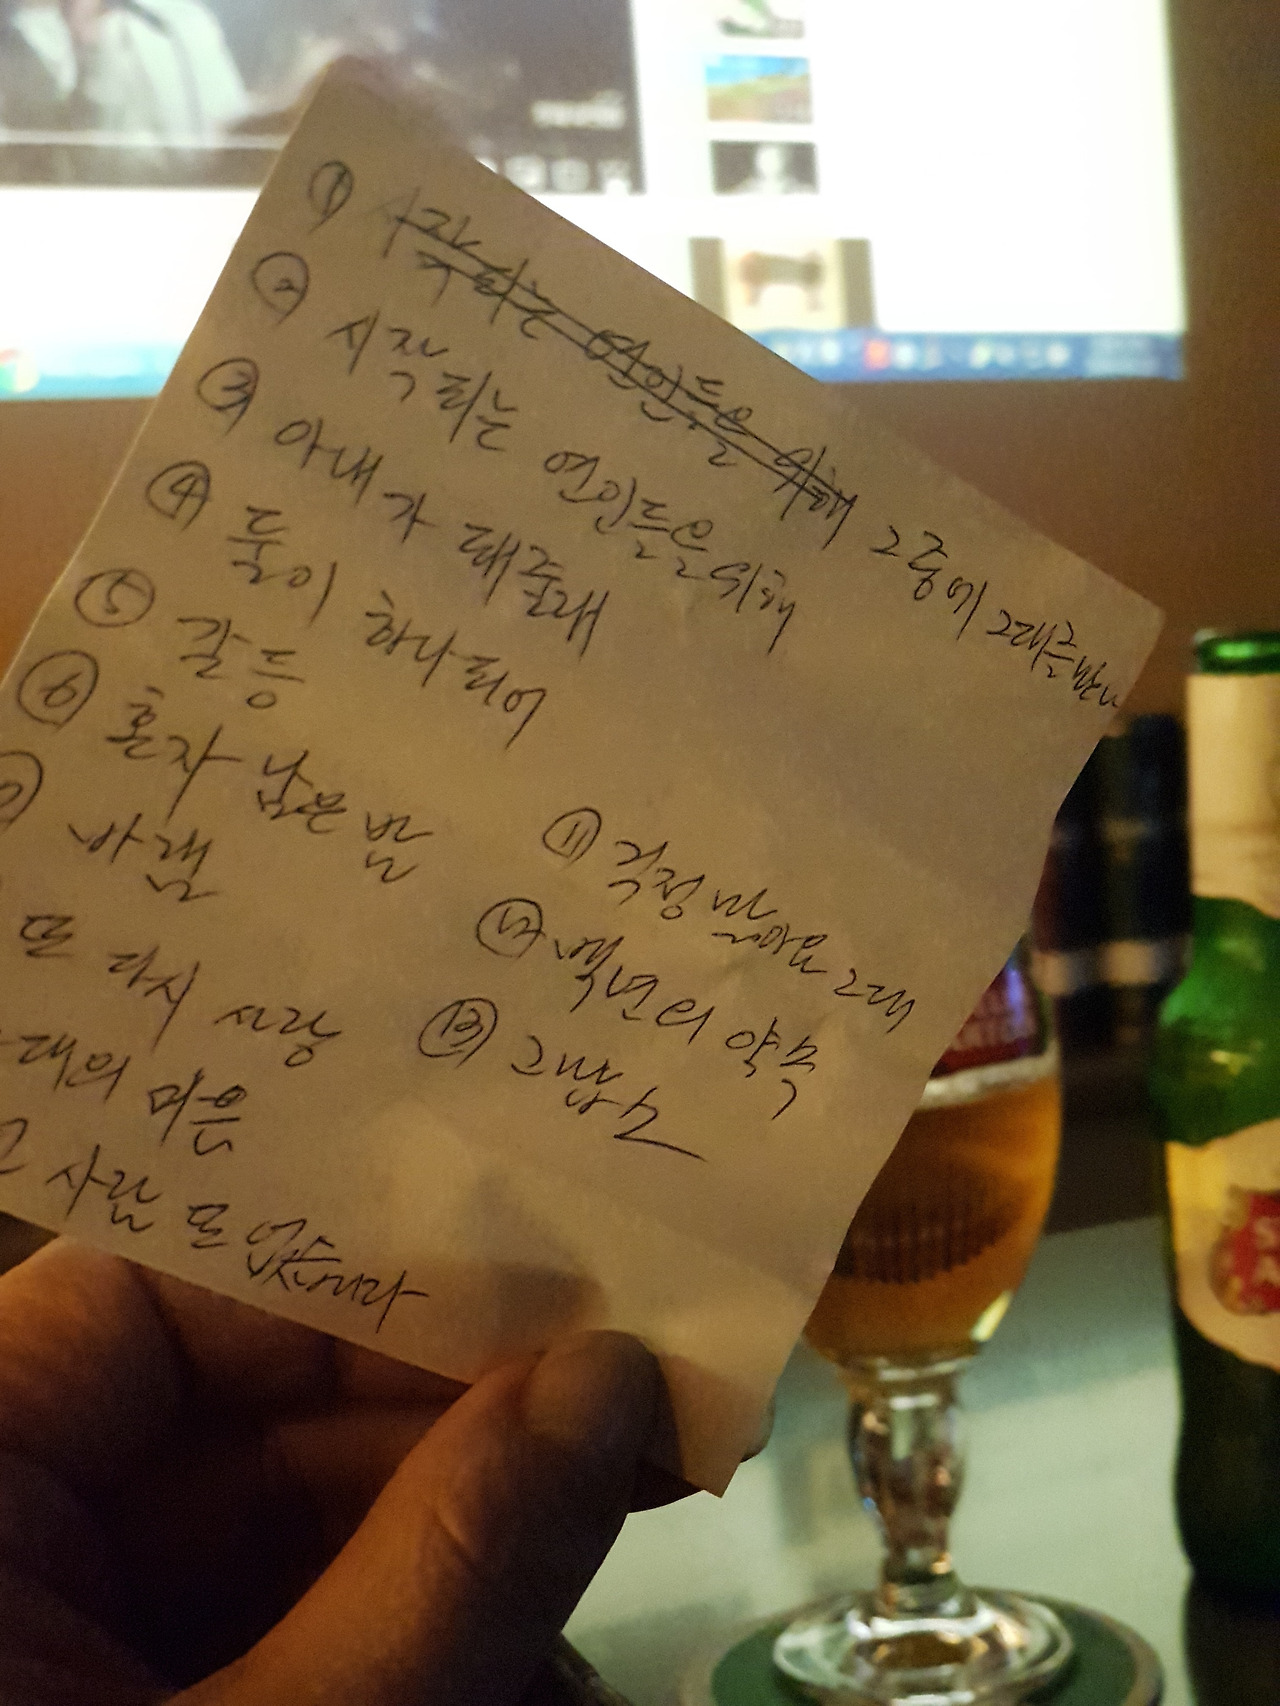 ① 시작되는 연인들을 위해 그중에 그대를 만나
② 시작되는 연인들을위해
③ 아내가 돼줄래
④ 둘이 하나되어
⑤ 갈등
⑥ 혼자 남은 밤
바램
또 다시 사랑
대의 마음
사람 또 없습니다
⑪ 걱정 말아요 그대
⑫ 백년의 약속
⑬ 그남소